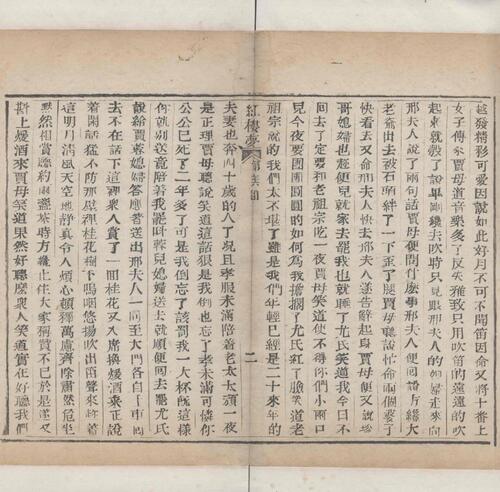 越發精彩可愛因說如此好月不可不聞笛因命又將十番上
女子傳來賈母道音樂多了反失雅致只用吹笛的遠遠的吹
起來就彀了說畢剛纔去吹時只見跟邢夫人的媳婦走來向
邢夫人說了兩句話賈母便問什麼事邢夫人便回說方纔大
老爺出去被石頭絆了一下歪了腿賈母聽說忙命兩個婆子
快看去又命邢夫人快去邢夫人遂告辭起身賈母便又說珍
哥媳婦也趁便兒就家去罷我也就睡了尤氏笑道我今日不
回去了定要和老祖宗吃一夜賈母笑道使不得你們小兩口
兒今夜要團團圓圓的如何為我擔擱了尤氏紅了臉笑道老
祖宗說的我們太不堪了雖是我們年輕已經是二十來年的
紅樓夢 第回 二
夫妻也奔四十歲的人了況且孝服未滿陪着老太太頑一夜
是正理賈母聽說笑道這話狠是我倒也忘了孝未滿可憐你
公公已死了二年多了可是我倒忘了該罰我一大杯既這樣
你就別送竟陪着我罷叫蓉兒媳婦送去就順便回去罷尤氏
說給賈蓉媳婦答應着送出邢夫人一同至大門各自上車回
去不在話下這裡眾人賞了一回桂花又入席換煖酒來正說
着閒話猛不防那壁裡桂花樹下嗚咽悠揚吹出笛聲來趁着
這明月清風天空地靜真令人煩心頓釋萬慮齊除肅然危坐
默然相賞聽約兩盞茶時方纔止住大家稱贊不已於是遂又
斟上煖酒來賈母笑道果然好聽麼眾人笑道實在好聽我們